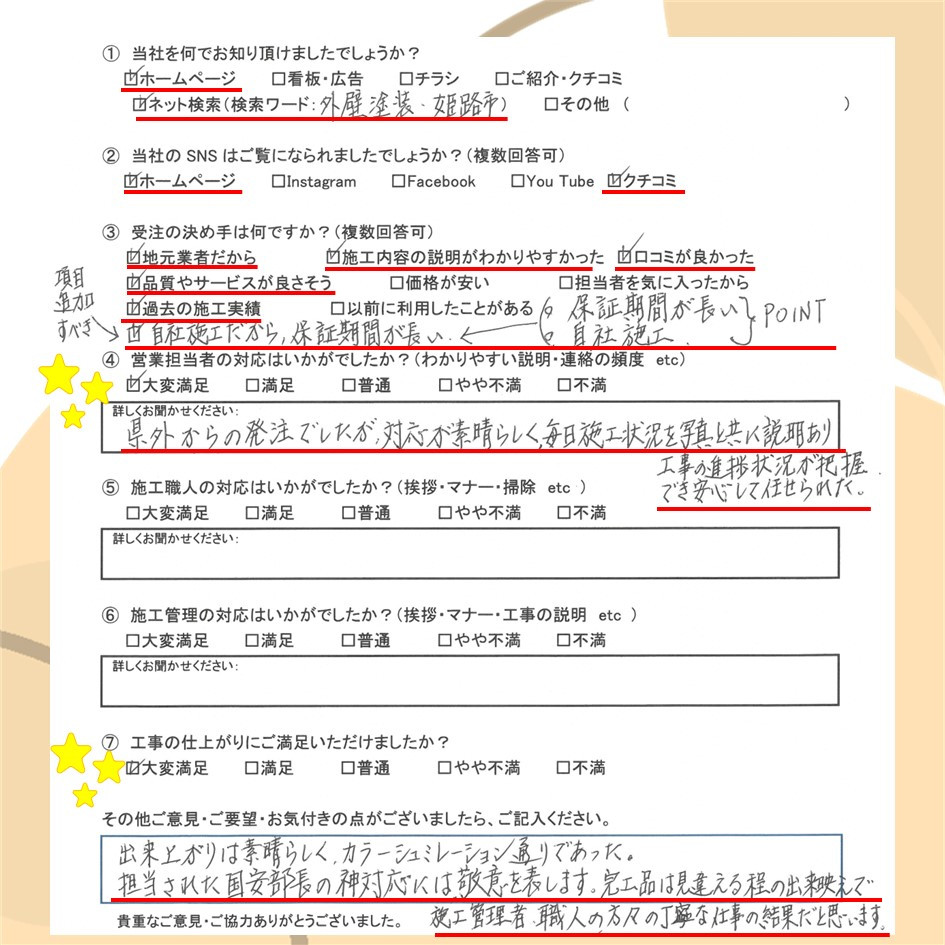 ① 当社を何でお知り頂けましたでしょうか？
☑ホームページ □看板・広告 □チラシ □ご紹介・クチコミ
☑ネット検索（検索ワード：外壁塗装・姫路市） □その他（ ）
② 当社の SNS はご覧になられましたでしょうか？（複数回答可）
☑ホームページ □Instagram □Facebook □You Tube ☑クチコミ
③ 受注の決め手は何ですか？（複数回答可）
☑地元業者だから ☑施工内容の説明がわかりやすかった ☑口コミが良かった
☑品質やサービスが良さそう □価格が安い □担当者を気に入ったから
☑過去の施工実績 □以前に利用したことがある
項目
追加
すべき
☑自社施工だから，保証期間が長い．
保証期間が長い
自社施工．
POINT
④ 営業担当者の対応はいかがでしたか？（わかりやすい説明・連絡の頻度 etc）
☑大変満足 □満足 □普通 □やや不満 □不満
詳しくお聞かせください：
県外からの発注でしたが，対応が素晴らしく，毎日施工状況を写真と共に説明あり
工事の進捗状況が把握
でき安心して任せられた。
⑤ 施工職人の対応はいかがでしたか？（挨拶・マナー・掃除 etc ）
□大変満足 □満足 □普通 □やや不満 □不満
詳しくお聞かせください：
⑥ 施工管理の対応はいかがでしたか？（挨拶・マナー・工事の説明 etc ）
□大変満足 □満足 □普通 □やや不満 □不満
詳しくお聞かせください：
⑦ 工事の仕上がりにご満足いただけましたか？
☑大変満足 □満足 □普通 □やや不満 □不満
その他ご意見・ご要望・お気付きの点がございましたら、ご記入ください。
出来上がりは素晴らしく，カラーシュミレーション通りであった。
担当された国安部長の神対応には敬意を表します。完工品は見違える程の出来映えで
施工管理者，職人の方々の丁寧な仕事の結果だと思います。
貴重なご意見・ご協力ありがとうございました。